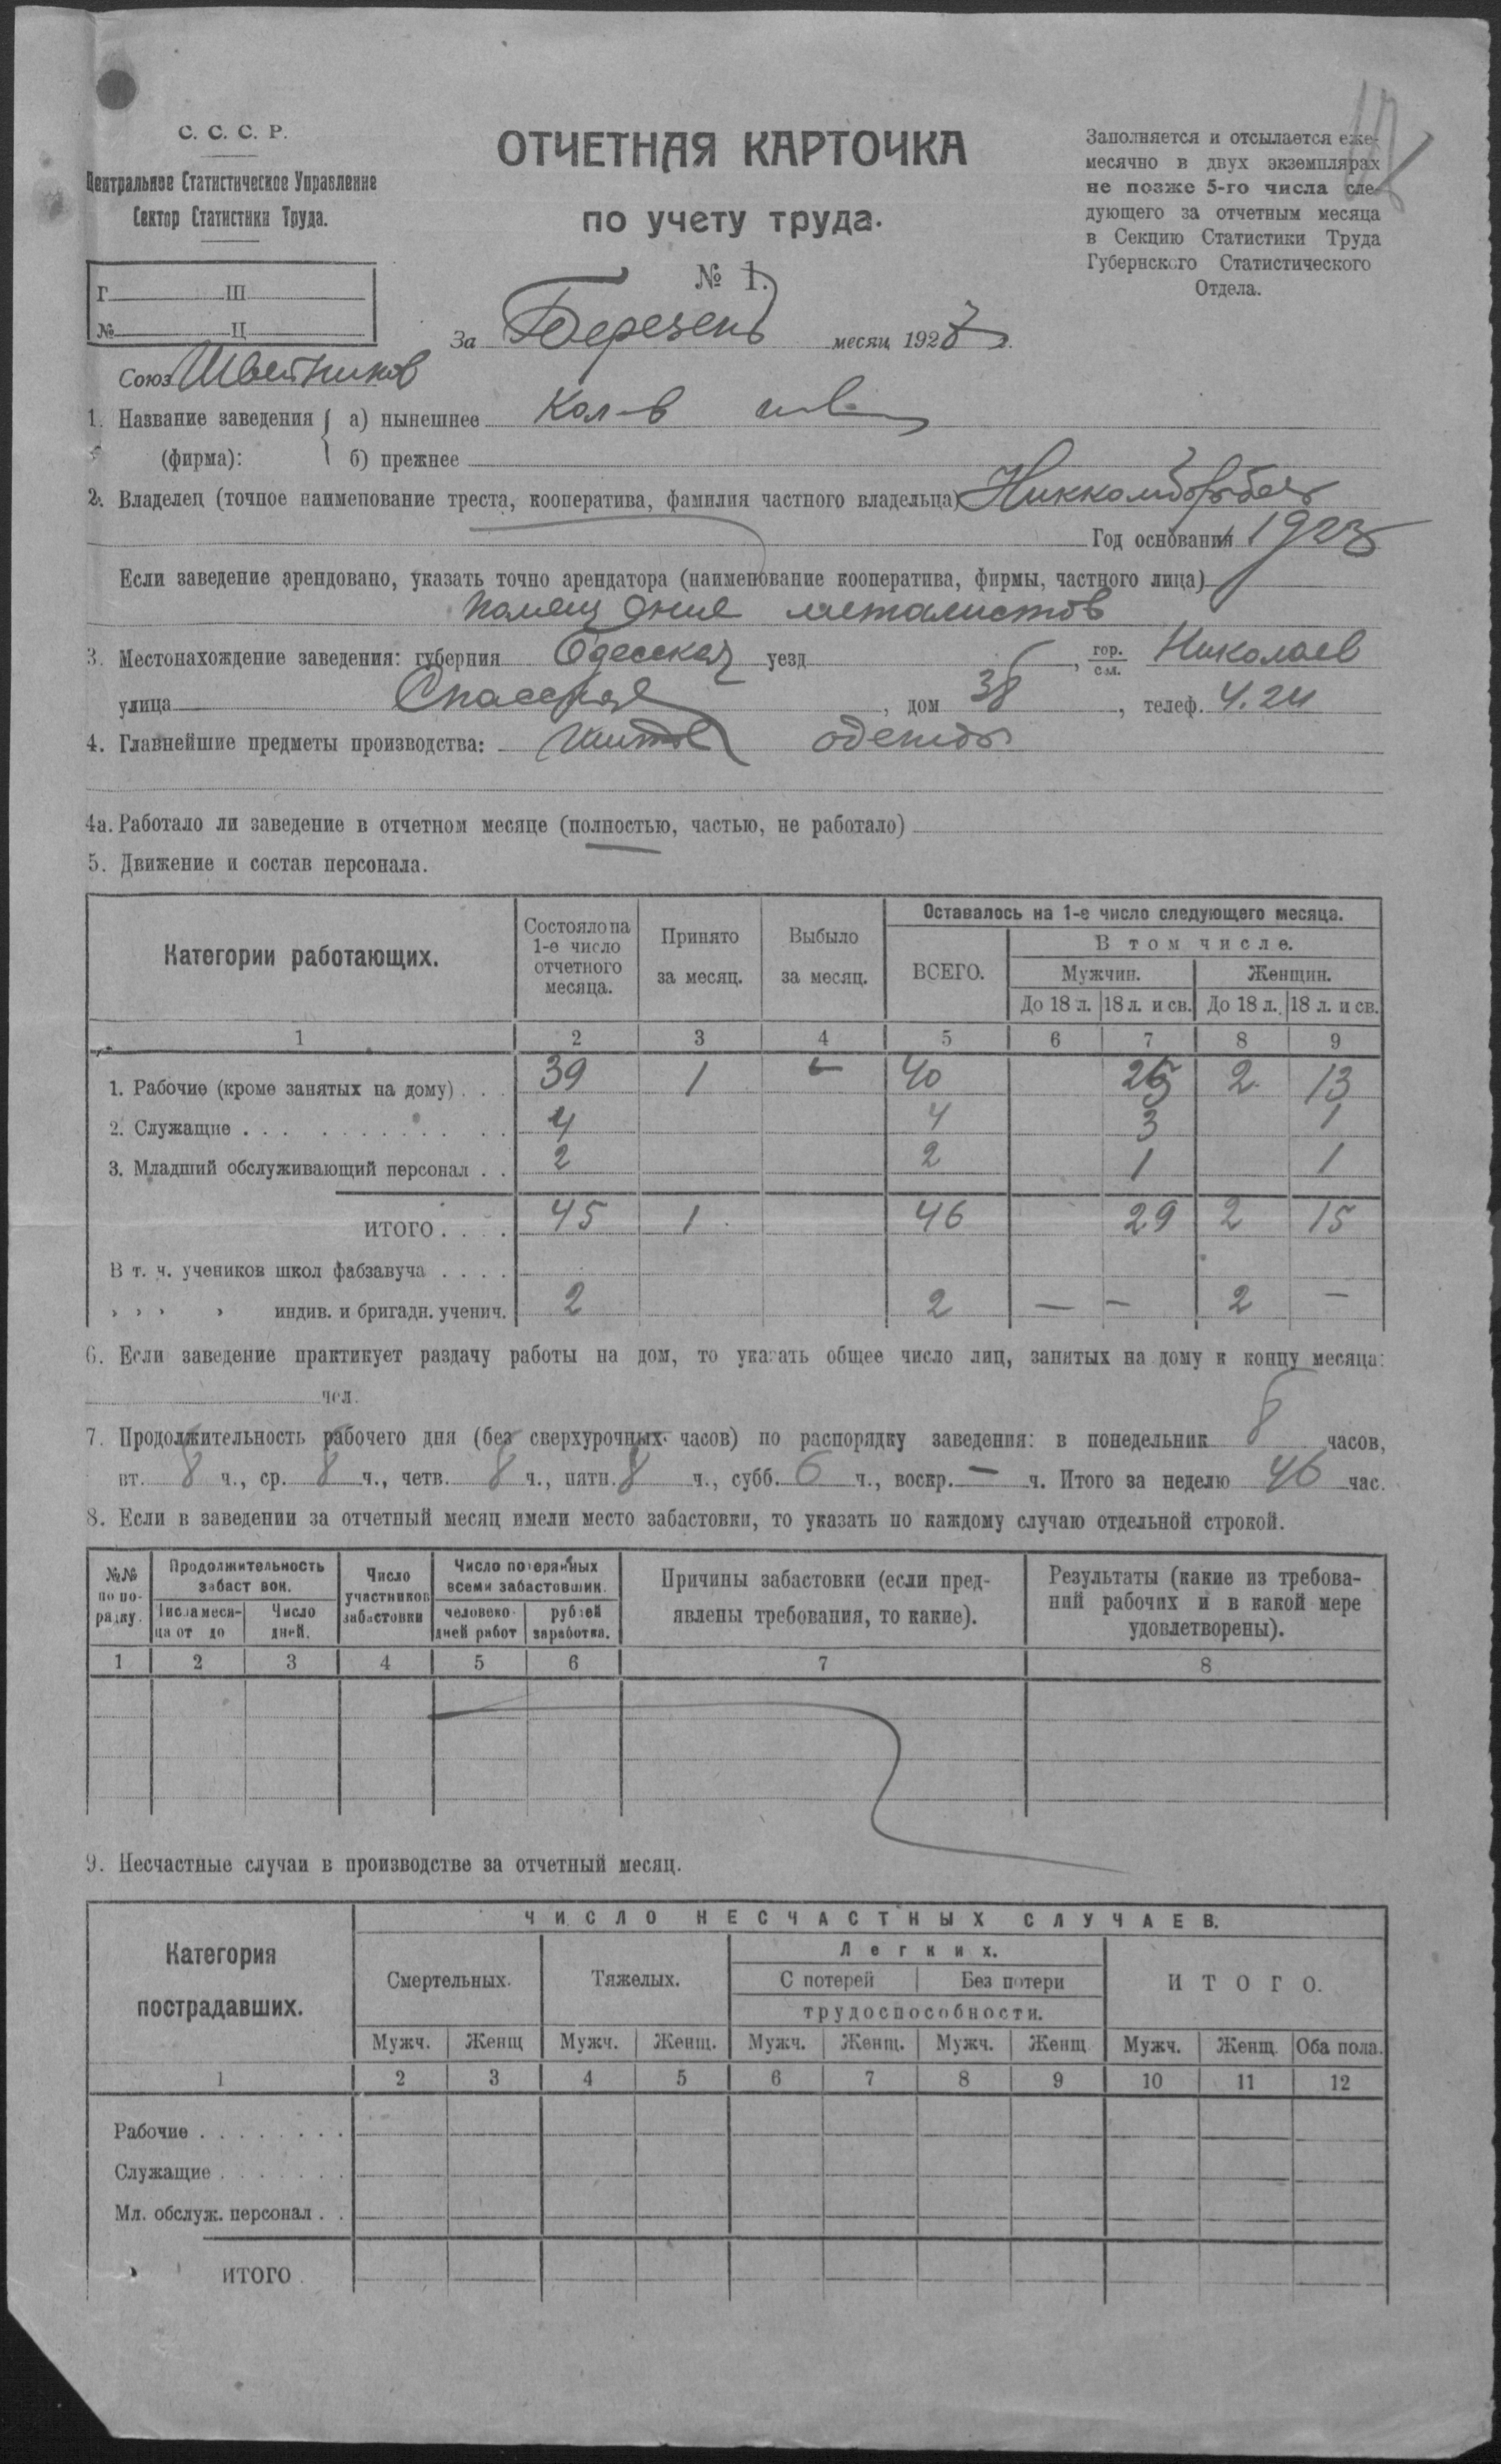 С. С. С. Р.
Центральное Статистическое Управление
Сектор Статистики Труда.
Г. III
№ Ц
ОТЧЕТНАЯ КАРТОЧКА
по учету труда.
№ 1.
Заполняется и отсылается еже-
месячно в двух экземплярах
не позже 5-го числа сле-
дующего за отчетным месяца
в Секцию Статистики Труда
Губернского Статистического
Отдела.
За Березень месяц 192
Союз Швейников
1. Название заведения (фирма): а) нынешнее Кол-в
б) прежнее
2. Владелец (точное наименование треста, кооператива, фамилия частного владельца)
Год основания 1923
Если заведение арендовано, указать точно арендатора (наименование кооператива, фирмы, частного лица)
помещение металистов
3. Местонахождение заведения: губерния Одесская уезд , гор. сел. Николаев
улица Спасская , дом 38 , телеф. 4.24
4. Главнейшие предметы производства: шитье одежды
4а. Работало ли заведение в отчетном месяце (полностью, частью, не работало)
5. Движение и состав персонала.
Категории работающих. Состояло на 1-е число отчетного месяца. Принято за месяц. Выбыло за месяц. Оставалось на 1-е число следующего месяца.
ВСЕГО. В том числе.
Мужчин. Женщин.
До 18 л. 18 л. и св. До 18 л. 18 л. и св.
1 2 3 4 5 6 7 8 9
1. Рабочие (кроме занятых на дому) . . . 39 1 – 40 25 2 13
2. Служащие . . . 4 4 3 1
3. Младший обслуживающий персонал . . 2 2 1 1
ИТОГО . . . . 45 1 46 29 2 15
В т. ч. учеников школ фабзавуча . . . .
» » » » индив. и бригадн. ученич. 2 2 — — 2 —
6. Если заведение практикует раздачу работы на дом, то указать общее число лиц, занятых на дому к концу месяца:
чел.
7. Продолжительность рабочего дня (без сверхурочных часов) по распорядку заведения: в понедельник 8 часов,
вт. 8 ч., ср. 8 ч., четв. 8 ч., пятн. 8 ч., субб. 6 ч., воскр. — ч. Итого за неделю 46 час.
8. Если в заведении за отчетный месяц имели место забастовки, то указать по каждому случаю отдельной строкой.
№№ по по-рядку. Продолжительность забастовок. Число участников забастовки Число потерянных всеми забастовшик. Причины забастовки (если пред-явлены требования, то какие). Результаты (какие из требова-ний рабочих и в какой мере удовлетворены).
Числа меся-ца от до Число дней. человеко-дней работ рублей заработка.
1 2 3 4 5 6 7 8
9. Несчастные случаи в производстве за отчетный месяц.
Категория пострадавших. ЧИСЛО НЕСЧАСТНЫХ СЛУЧАЕВ.
Смертельных. Тяжелых. Легких. ИТОГО.
С потерей Без потери
трудоспособности.
Мужч. Женщ Мужч. Женщ. Мужч. Женщ. Мужч. Женщ Мужч. Женщ. Оба пола.
1 2 3 4 5 6 7 8 9 10 11 12
Рабочие . . . . . . . .
Служащие . . . . . . .
Мл. обслуж. персонал . .
ИТОГО .